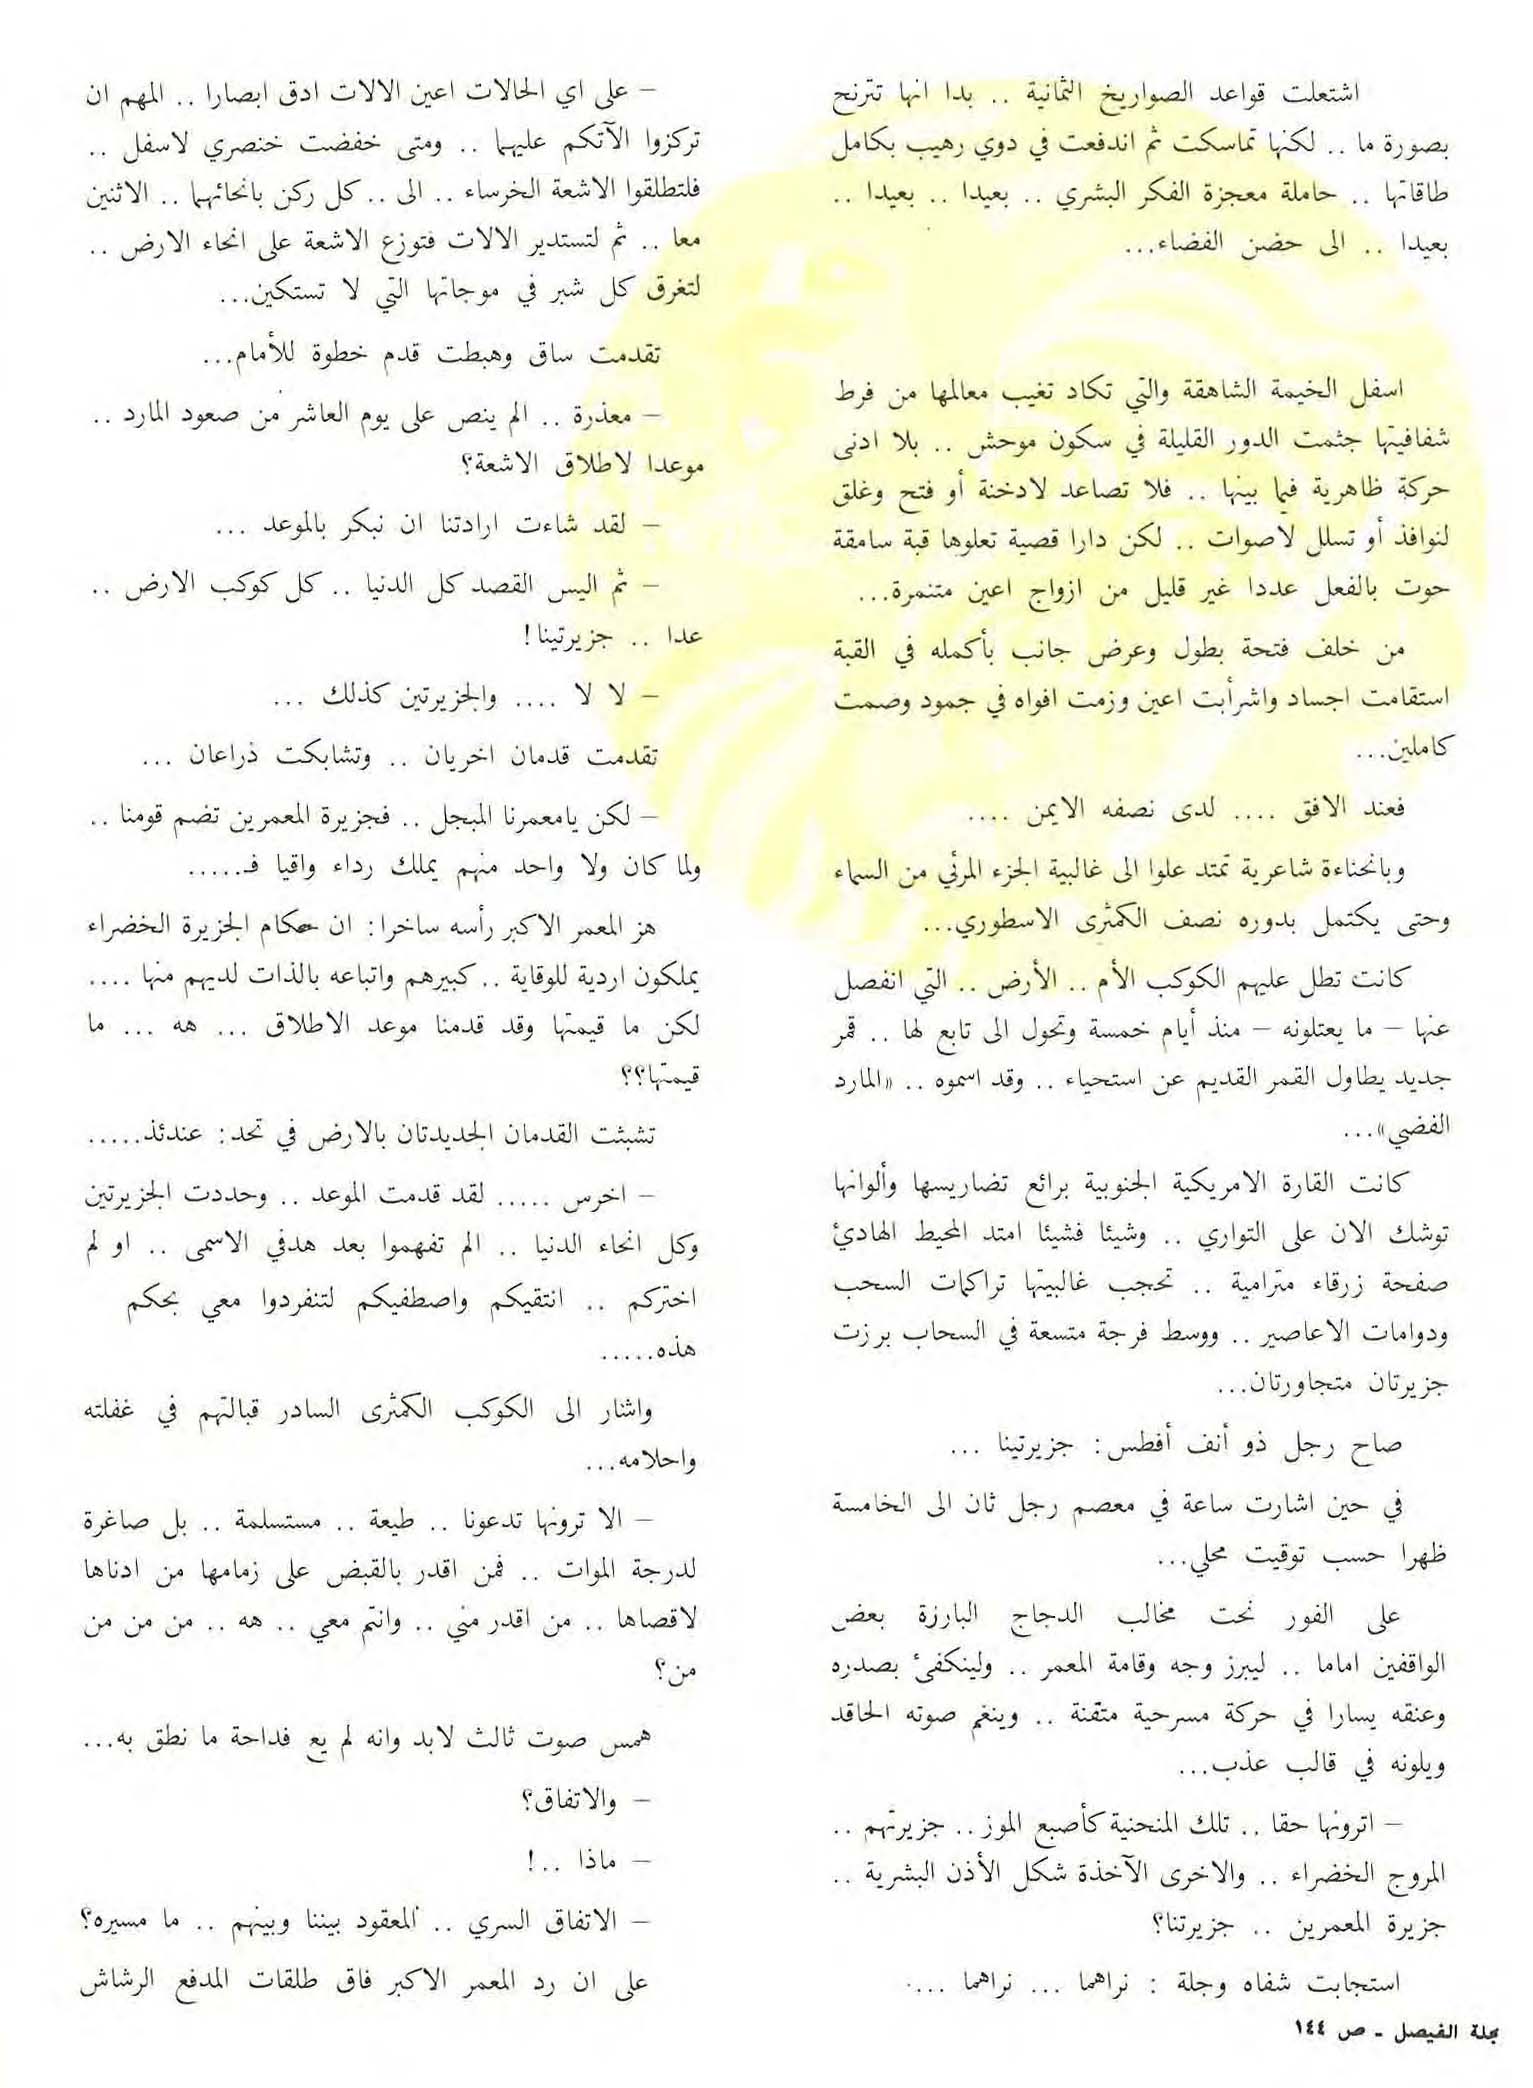 اشتعلت قواعد الصواريخ الثمانية .. بدا انها تترنح
بصورة ما .. لكنها تماسكت ثم اندفعت في دوي رهيب بكامل
طاقاتها .. حاملة معجزة الفكر البشري .. بعيدا .. بعيدا ..
بعيدا .. الى حضن الفضاء...
اسفل الخيمة الشاهقة والتي تكاد تغيب معالمها من فرط
شفافيتها جثمت الدور القليلة في سكون موحش .. بلا ادنى
حركة ظاهرية فيما بينها .. فلا تصاعد لادخنة أو فتح وغلق
لنوافذ أو تسلل لاصوات .. لكن دارا قصية تعلوها قبة سامقة
حوت بالفعل عددا غير قليل من ازواج اعين متنمرة...
من خلف فتحة بطول وعرض جانب بأكمله في القبة
استقامت اجساد واشرأبت اعين وزمت افواه في جمود وصمت
كاملين...
فعند الافق .... لدى نصفه الايمن ....
وبانحناءة شاعرية تمتد علوا الى غالبية الجزء المرئي من السماء
وحتى يكتمل بدوره نصف الكمثرى الاسطوري...
كانت تطل عليهم الكوكب الأم .. الأرض .. التي انفصل
عنها – ما يعتلونه – منذ أيام خمسة وتحول الى تابع لها .. قمر
جديد يطاول القمر القديم عن استحياء .. وقد اسموه .. «المارد
الفضي»...
كانت القارة الامريكية الجنوبية برائع تضاريسها وألوانها
توشك الان على التواري .. وشيئا فشيئا امتد المحيط الهادئ
صفحة زرقاء مترامية .. تحجب غالبيتها تراكمات السحب
ودوامات الاعاصير .. ووسط فرجة متسعة في السحاب برزت
جزيرتان متجاورتان...
صاح رجل ذو أنف أفطس : جزيرتينا ...
في حين اشارت ساعة في معصم رجل ثان الى الخامسة
ظهرا حسب توقيت محلي...
على الفور نحت مخالب الدجاج البارزة بعض
الواقفين اماما .. ليبرز وجه وقامة المعمر .. ولينكفئ بصدره
وعنقه يسارا في حركة مسرحية متقنة .. وينغم صوته الحاقد
ويلونه في قالب عذب...
– اترونها حقا .. تلك المنحنية كأصبع الموز .. جزيرتهم ..
المروج الخضراء .. والاخرى الآخذة شكل الأذن البشرية ..
جزيرة المعمرين .. جزيرتنا؟
استجابت شفاه وجلة : نراهما ... نراهما ....
– على اي الحالات اعين الالات ادق ابصارا .. المهم ان
تركزوا الآتكم عليهما .. ومتى خفضت خنصري لاسفل ..
فلتطلقوا الاشعة الخرساء .. الى .. كل ركن بانحائهما .. الاثنين
معا .. ثم لتستدير الالات فتوزع الاشعة على انحاء الارض ..
لتغرق كل شبر في موجاتها التي لا تستكين...
تقدمت ساق وهبطت قدم خطوة للأمام...
– معذرة .. الم ينص على يوم العاشر من صعود المارد ..
موعدا لاطلاق الاشعة؟
– لقد شاءت ارادتنا ان نبكر بالموعد ...
– ثم اليس القصد كل الدنيا .. كل كوكب الارض ..
عدا .. جزيرتينا!
– لا لا .... والجزيرتين كذلك ...
تقدمت قدمان اخريان .. وتشابكت ذراعان ...
– لكن يامعمرنا المبجل .. فجزيرة المعمرين تضم قومنا ..
ولما كان ولا واحد منهم يملك رداء واقيا فـ.....
هز المعمر الاكبر رأسه ساخرا : ان حكام الجزيرة الخضراء
يملكون اردية للوقاية .. كبيرهم واتباعه بالذات لديهم منها ....
لكن ما قيمتها وقد قدمنا موعد الاطلاق ... هه ... ما
قيمتها؟؟
تشبثت القدمان الجديدتان بالارض في تحد : عندئذ.....
– اخرس ..... لقد قدمت الموعد .. وحددت الجزيرتين
وكل انحاء الدنيا .. الم تفهموا بعد هدفي الاسمى .. او لم
اختركم .. انتقيكم واصطفيكم لتنفردوا معي بحكم
هذه.....
واشار الى الكوكب الكمثرى السادر قبالتهم في غفلته
واحلامه...
– الا ترونها تدعونا .. طيعة .. مستسلمة .. بل صاغرة
لدرجة الموات .. فمن اقدر بالقبض على زمامها من ادناها
لاقصاها .. من اقدر مني .. وانتم معي .. هه .. من من من
من؟
همس صوت ثالث لابد وانه لم يع فداحة ما نطق به...
– والاتفاق؟
– ماذا ..!
– الاتفاق السري .. المعقود بيننا وبينهم .. ما مسيره؟
على ان رد المعمر الاكبر فاق طلقات المدفع الرشاش
مجلة الفيصل - ص ١٤٤